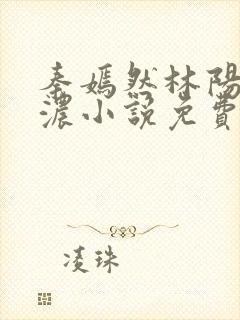 秦嫣然林陽
濃小說免費
凌珠